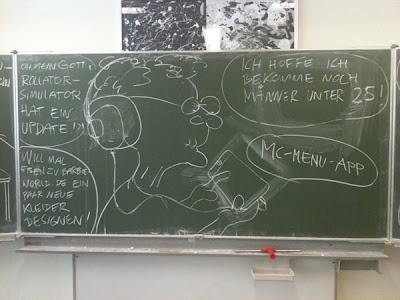 OH MEIN GOTT,
ROLLATOR-
SIMULATOR
HAT EIN
UPDATE!?!
WILL MAL
EBEN ZU BARBIE
WORLD.DE EIN
PAAR NEUE
KLEIDER
DESIGNEN!
ICH HOFFE ICH
BEKOMME NOCH
MÄNNER UNTER 25!
MC-MENU-APP